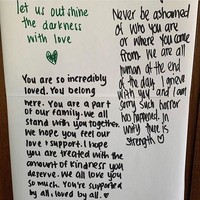 let us outshine
the darkness
with love
You are so incredibly
loved. You belong
here. You are a part
of our family. We all
stand with you together.
We hope you feel our
love + support. I hope
you are treated with the
amount of kindness you
deserve. We all love you
so much. You're supported
by all, loved by all.
Never be ashamed
of who you are
or where you come
from. We are all
human at the end
of the day. I grieve
with you and I am
sorry such horror
has happened. In
unity there is
strength